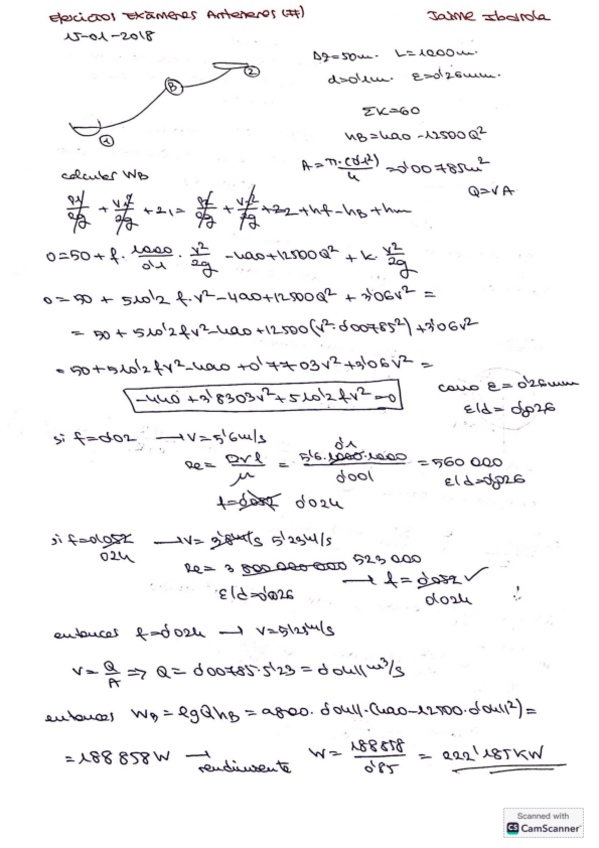 Ejercicios Exámenes Anteriores (#) Jaime Ibarrola
15-01-2018
Δz=50m. L=1000m.
d=0'1m. ε=0'26mm.
B
2
1
ΣK=60
hB=490-12500Q²
calcular WB
A=π·(0'1²)/4=0'00785m²
Q=VA
P1/ρg + V1²/2g + z1 = P2/ρg + V2²/2g + z2 + hf - hB + hm
0=50+f·1000/0'1·V²/2g -490+12500Q²+K·V²/2g
0=50+510'2 f·V²-490+12500Q²+3'06V²=
=50+510'2fV²-490+12500(V²·0'00785²)+3'06V²
=50+510'2fV²-490+0'7703V²+3'06V²=
-440+3'8303V²+510'2fV²=0
como ε=0'26mm
ε/d=0'0026
si f=0'02 → V=5'6m/s
Re=DVρ/μ=5'6·1000·0'1/0'001=560 000
ε/d=0'0026
f=0'052 0'024
si f=0'052 024 → V= 5'23m/s
Re= 523 000
ε/d=0'0026 → f=0'052 ✓ 0'024
entonces f=0'024 → V=5'23m/s
V=Q/A ⇒ Q=0'00785·5'23=0'041m³/s
entonces WB=ρgQhB=9800·0'041·(490-12500·0'041²)=
=188 858W → rendimiento W=188858/0'85=222'185KW
Scanned with
CS CamScanner